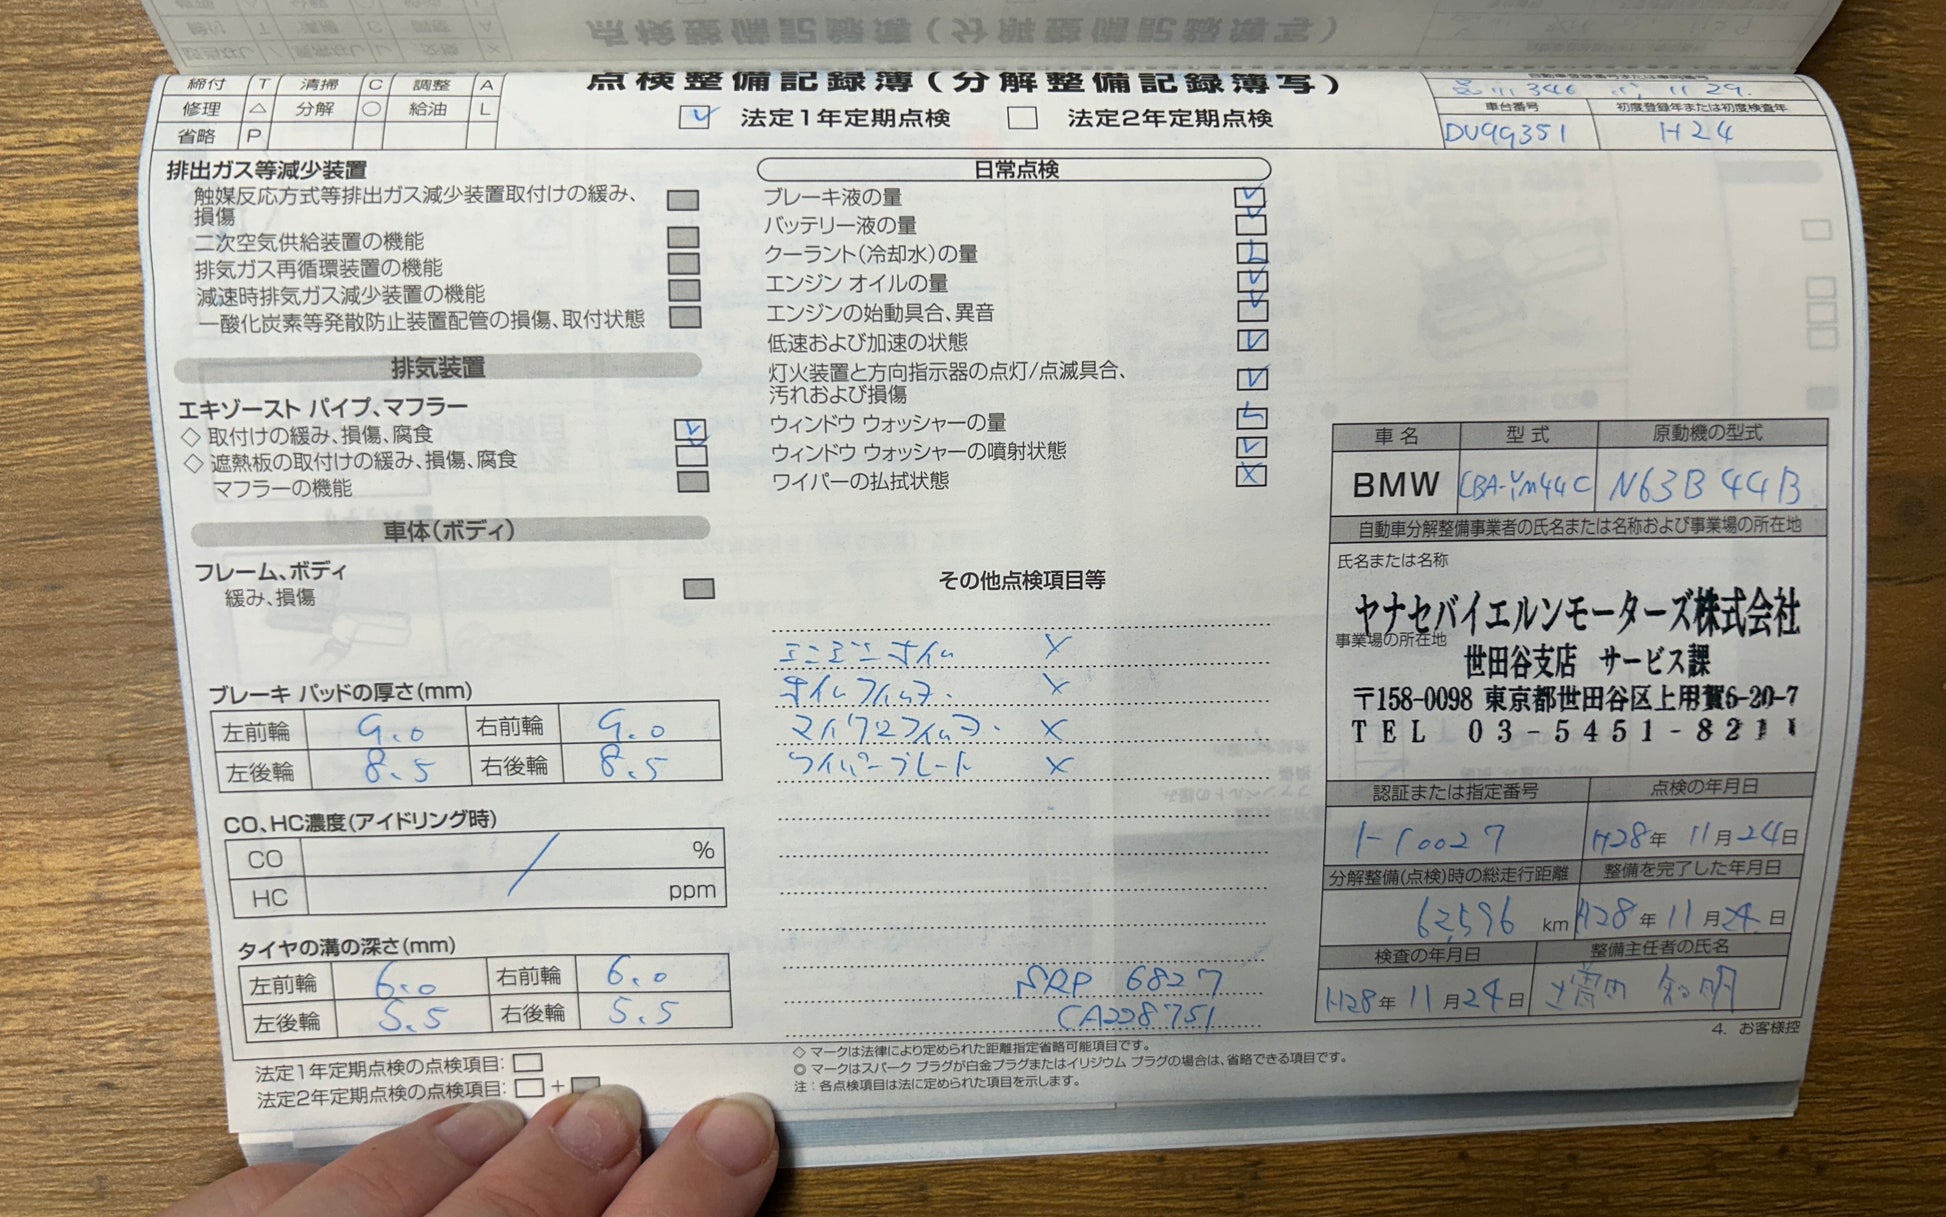 点検整備記録簿(分解整備記録簿写)
締付 T 清掃 C 調整 A
修理 △ 分解 ○ 給油 L
省略 P
✓ 法定1年定期点検 □ 法定2年定期点検
自動車登録番号または車両番号
346 11 29
車台番号 初度登録年または初度検査年
DU99351 H24
排出ガス等減少装置
触媒反応方式等排出ガス減少装置取付けの緩み、
損傷
二次空気供給装置の機能
排気ガス再循環装置の機能
減速時排気ガス減少装置の機能
一酸化炭素等発散防止装置配管の損傷、取付状態
排気装置
エキゾースト パイプ、マフラー
◇ 取付けの緩み、損傷、腐食 ✓
◇ 遮熱板の取付けの緩み、損傷、腐食 ✓
マフラーの機能
車体(ボディ)
フレーム、ボディ
緩み、損傷
ブレーキ パッドの厚さ(mm)
左前輪 9.0 右前輪 9.0
左後輪 8.5 右後輪 8.5
CO、HC濃度(アイドリング時)
CO %
HC ppm
タイヤの溝の深さ(mm)
左前輪 6.0 右前輪 6.0
左後輪 5.5 右後輪 5.5
法定1年定期点検の点検項目: □
法定2年定期点検の点検項目: □+
日常点検
ブレーキ液の量 ✓
バッテリー液の量 ✓
クーラント(冷却水)の量 L
エンジン オイルの量 ✓
エンジンの始動具合、異音 ✓
低速および加速の状態 ✓
灯火装置と方向指示器の点灯/点滅具合、
汚れおよび損傷 ✓
ウィンドウ ウォッシャーの量 L
ウィンドウ ウォッシャーの噴射状態 ✓
ワイパーの払拭状態 X
その他点検項目等
エンジンオイル X
オイルフィルター X
マイクロフィルター X
ワイパーブレード X
SRP 6827
CA228751
◇ マークは法律により定められた距離指定省略可能項目です。
◎ マークはスパーク プラグが白金プラグまたはイリジウム プラグの場合は、省略できる項目です。
注:各点検項目は法に定められた項目を示します。
車名 型式 原動機の型式
BMW CBA-YM44C N63B44B
自動車分解整備事業者の氏名または名称および事業場の所在地
氏名または名称
ヤナセバイエルンモーターズ株式会社
事業場の所在地
世田谷支店 サービス課
〒158-0098 東京都世田谷区上用賀6-20-7
TEL 03-5451-8211
認証または指定番号 点検の年月日
1-10027 H28年 11月24日
分解整備(点検)時の総走行距離 整備を完了した年月日
62,596 km H28年 11月24日
検査の年月日 整備主任者の氏名
H28年 11月24日
4. お客様控